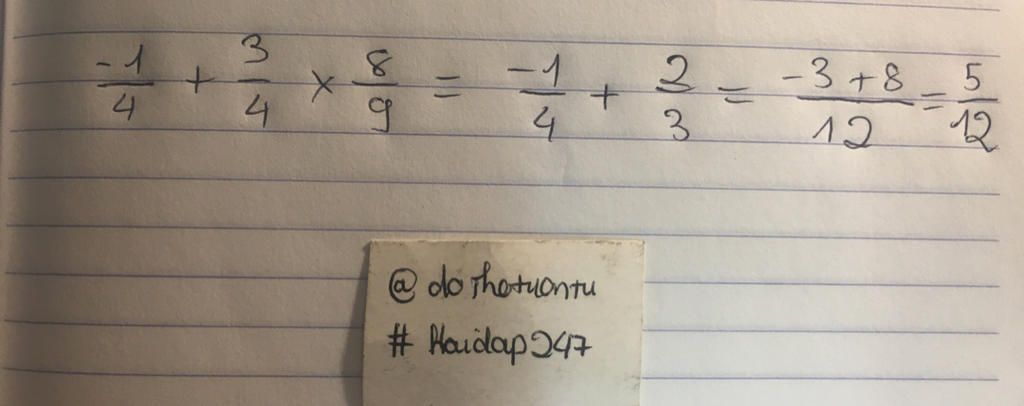 -1/4 + 3/4 × 8/9 = -1/4 + 2/3 = (-3 + 8)/12 = 5/12
@dothetuontu
# Hoidap247